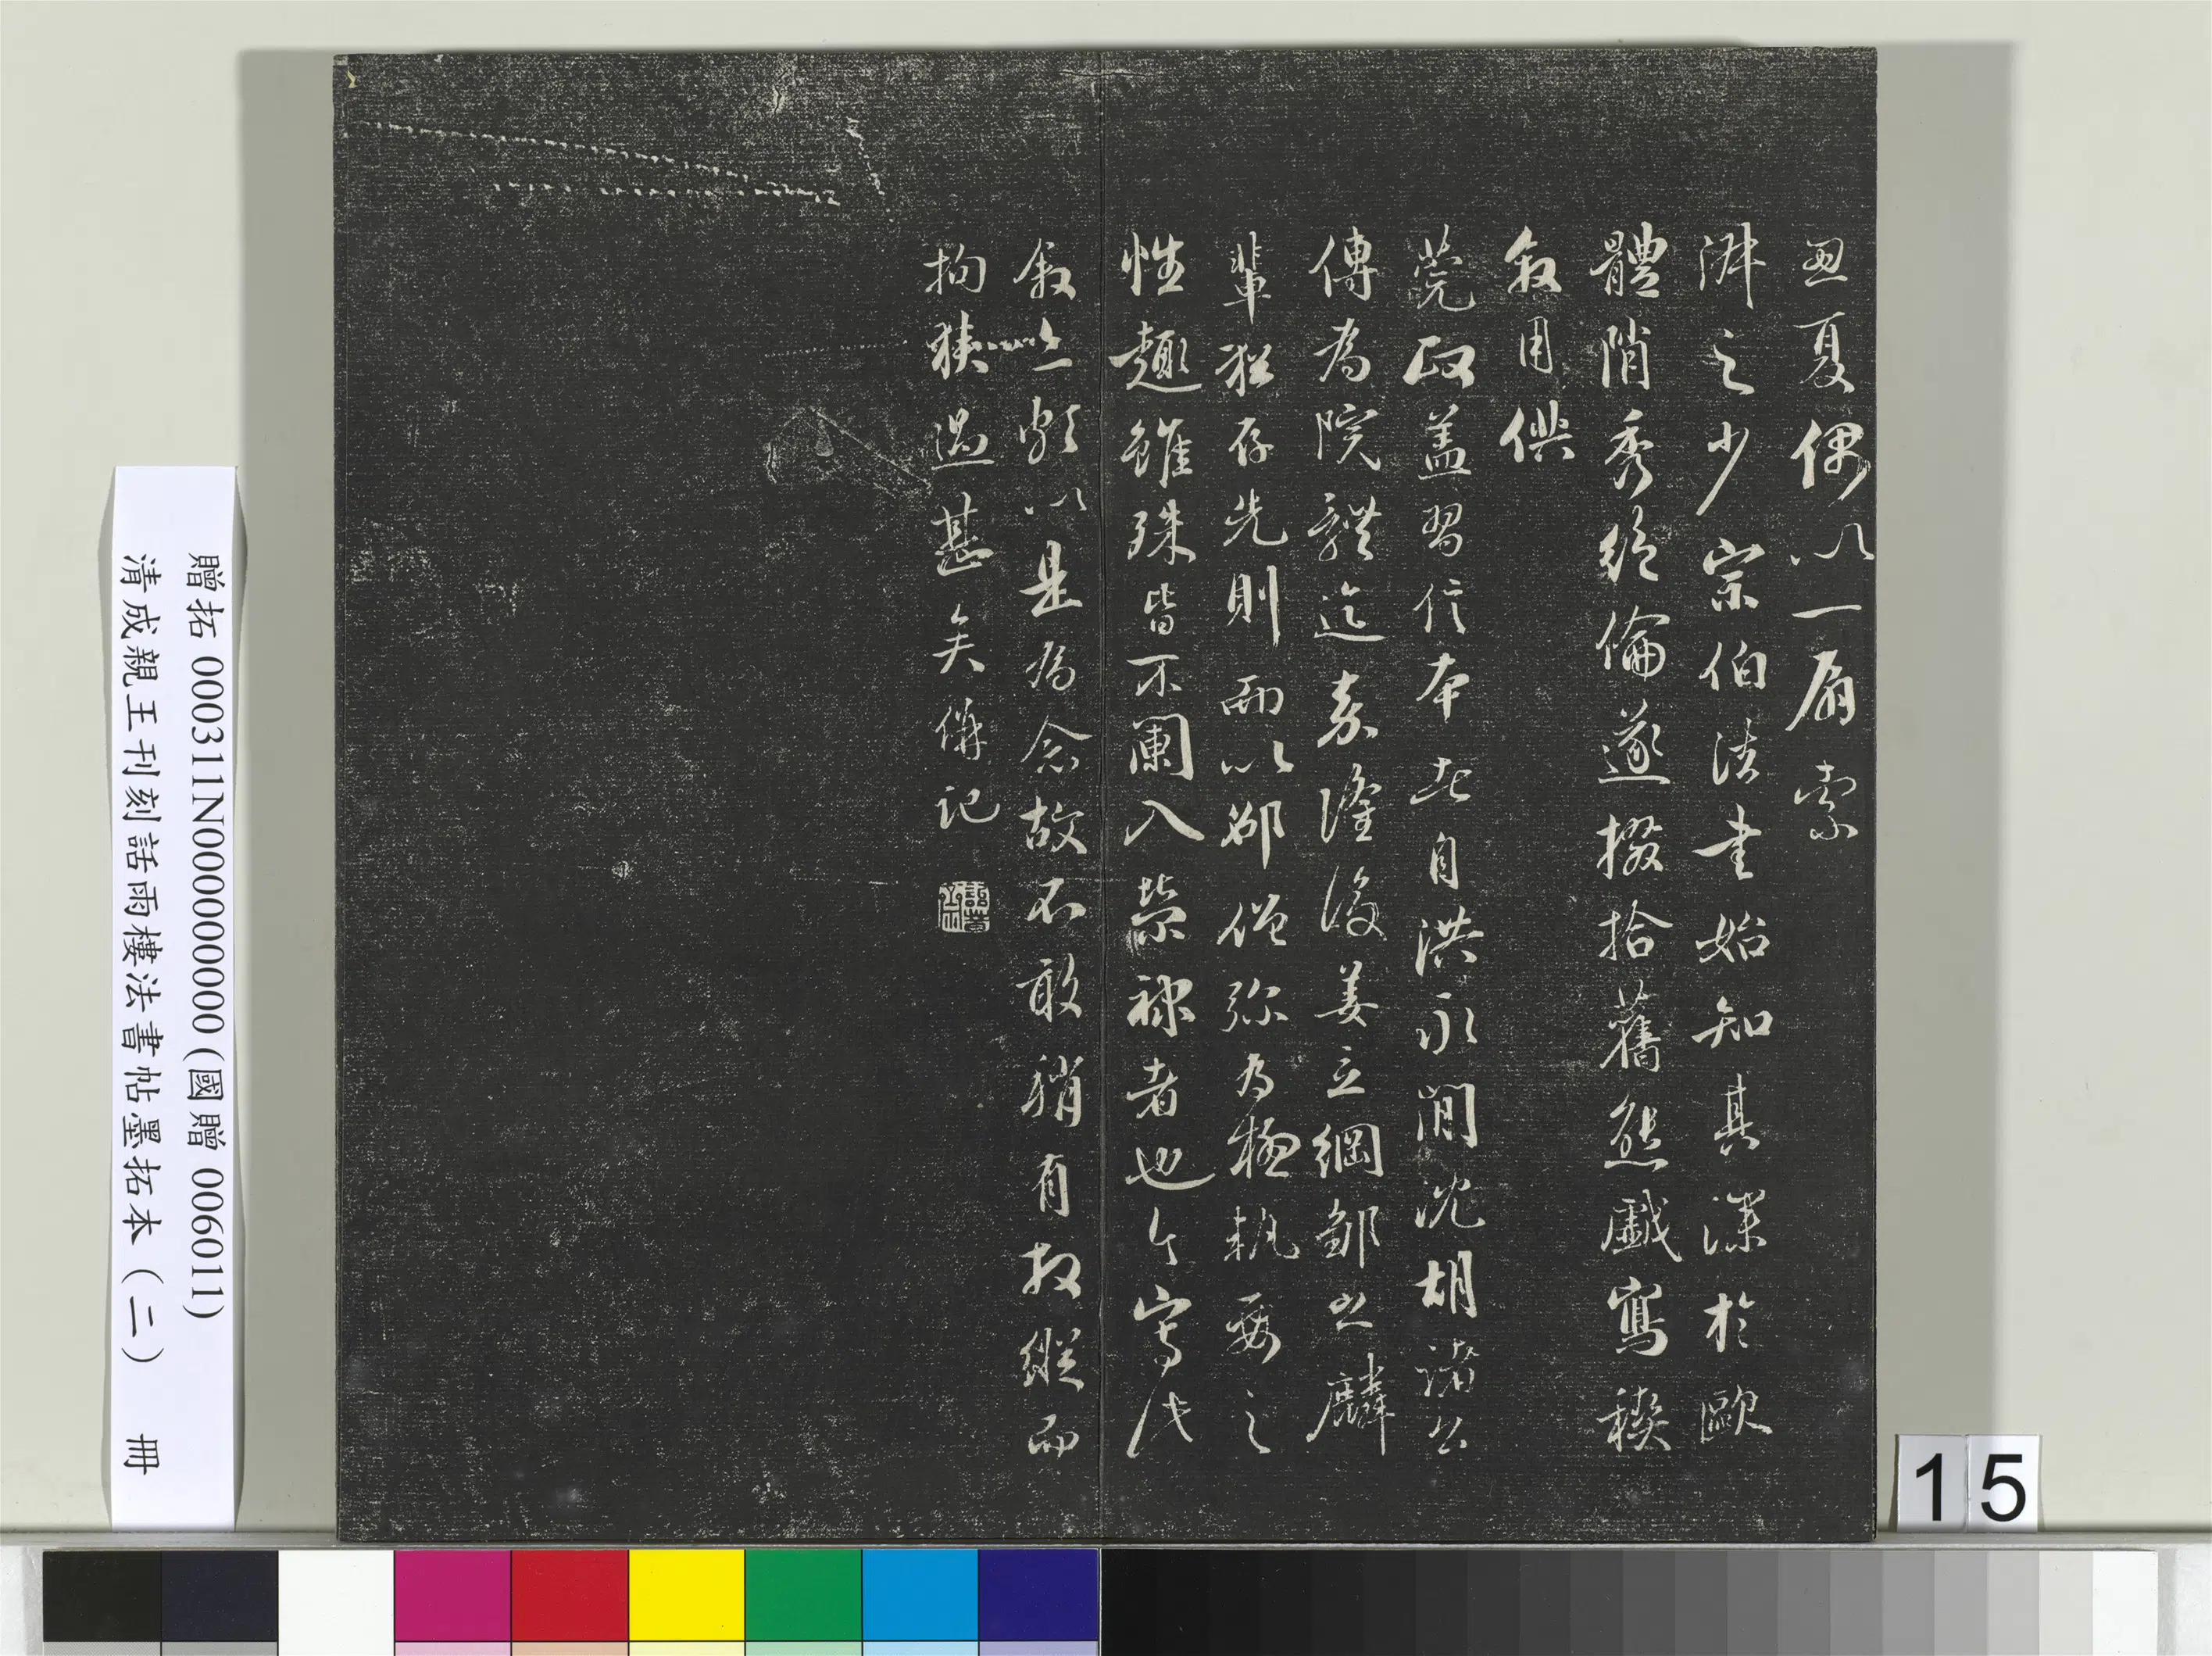 丑夏偶以一扇索
泲之少宗伯法書始知其深於歐
體陗秀絕倫遂掇拾舊態戲寫稧
叙用供
莞政蓋習信本者自洪永間沈胡諸公
傳為院體迄嘉隆後姜立綱鄒之麟
輩猶存先則而以鄉僧弥為極軌要之
性趣雖殊皆不闌入禁䘲者也今寫此
叙亦頗以是為念故不敢稍有放縱而
拘狹過甚矣併記
贈拓 000311N000000000 (國贈 006011)
清成親王刊刻詒雨樓法書帖墨拓本（二） 冊
15